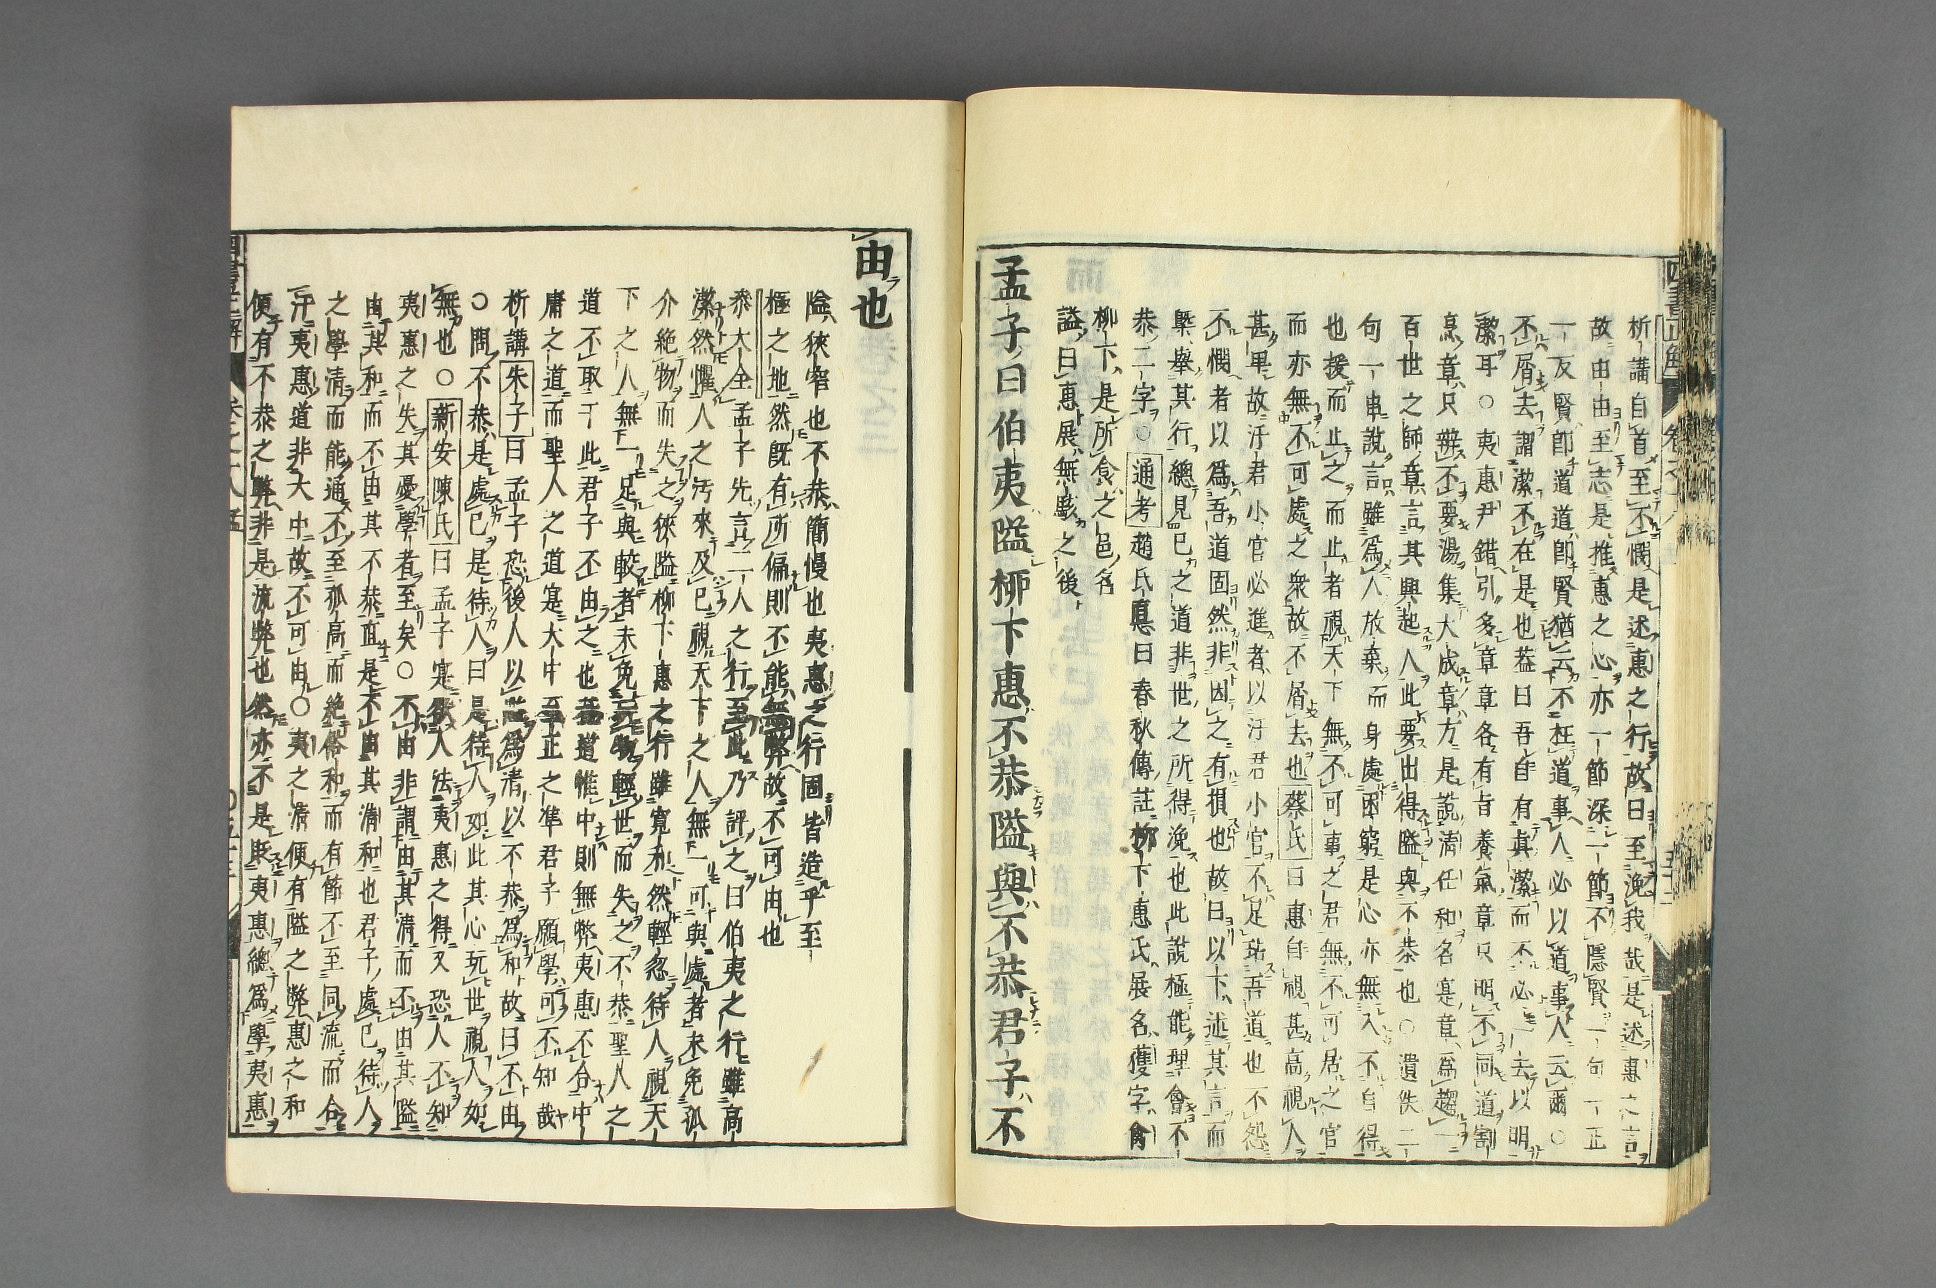 析講自首至不憫是述惠之行故曰至浼我哉是述惠之言
故由由至志是推惠之心亦一節深一節不隱賢一句一正
一反賢卽道道卽賢猶云不枉道事人必以道事人云爾○
不屑去謂潔不在是也蓋曰吾自有真潔而不必一去以明
潔耳○夷惠尹錯引多章章各有旨養氣章只明不同道割
烹章只辨不要湯集大成章方是說清任和名寔章爲趨一
百世之師章言其興起人此要出得隘與不恭也○遺佚二
句一串說言雖爲人放棄而身處困窮是心亦無入不自得
也援而止之而止者視天下無不可事之君無不可居之官
而亦無不可處之衆故不屑去也蔡氏曰惠自視甚高視人
甚卑故汙君小官必進者以汙君小官不足玷吾道也不怨
不憫者以爲吾道固然非因之有損也故曰以下述其言而
槩擧其行總見己之道非世之所得浼也此說極能理會不
恭二字○通考趙氏悳曰春秋傳註柳下惠氏展名獲字禽
柳下是所食之邑名
諡曰惠展無駭之後
孟子曰伯夷隘柳下惠不恭隘與不恭君子不
由也
隘狹窄也不恭簡慢也夷惠之行固皆造乎至
極之地然旣有所偏則不能無弊故不可由也
大全孟子先言二人之行至此乃評之曰伯夷之行雖高
潔然懼人之汚來及己視天下之人無一可與處者未免孤
介絶物而失之狹隘柳下惠之行雖寬和然輕忽待人視天
下之人無一足與較者未免玩物輕世而失之不恭聖人之
道不取于此君子不由之也蓋道惟中則無弊夷惠不合中
庸之道而聖人之道寔大中至正之準君子願學可不知哉
析講朱子曰孟子恐後人以隘爲淸以不恭爲和故曰不由
○問不恭是處己是待人曰是待人如此其心玩世視人如
無也○新安陳氏曰孟子寔欲人法夷惠之得又恐人不知
夷惠之失其憂學者至矣○不由非謂由其淸而不由其隘
由其和而不由其不恭直是不由其淸和也君子處己待人
之學淸而能通不至孤高而絶俗和而有節不至同流而合
汙夷惠道非大中故不可由○夷之淸便有隘之弊惠之和
便有不恭之弊非是流弊也然亦不是貶夷惠總爲學夷惠